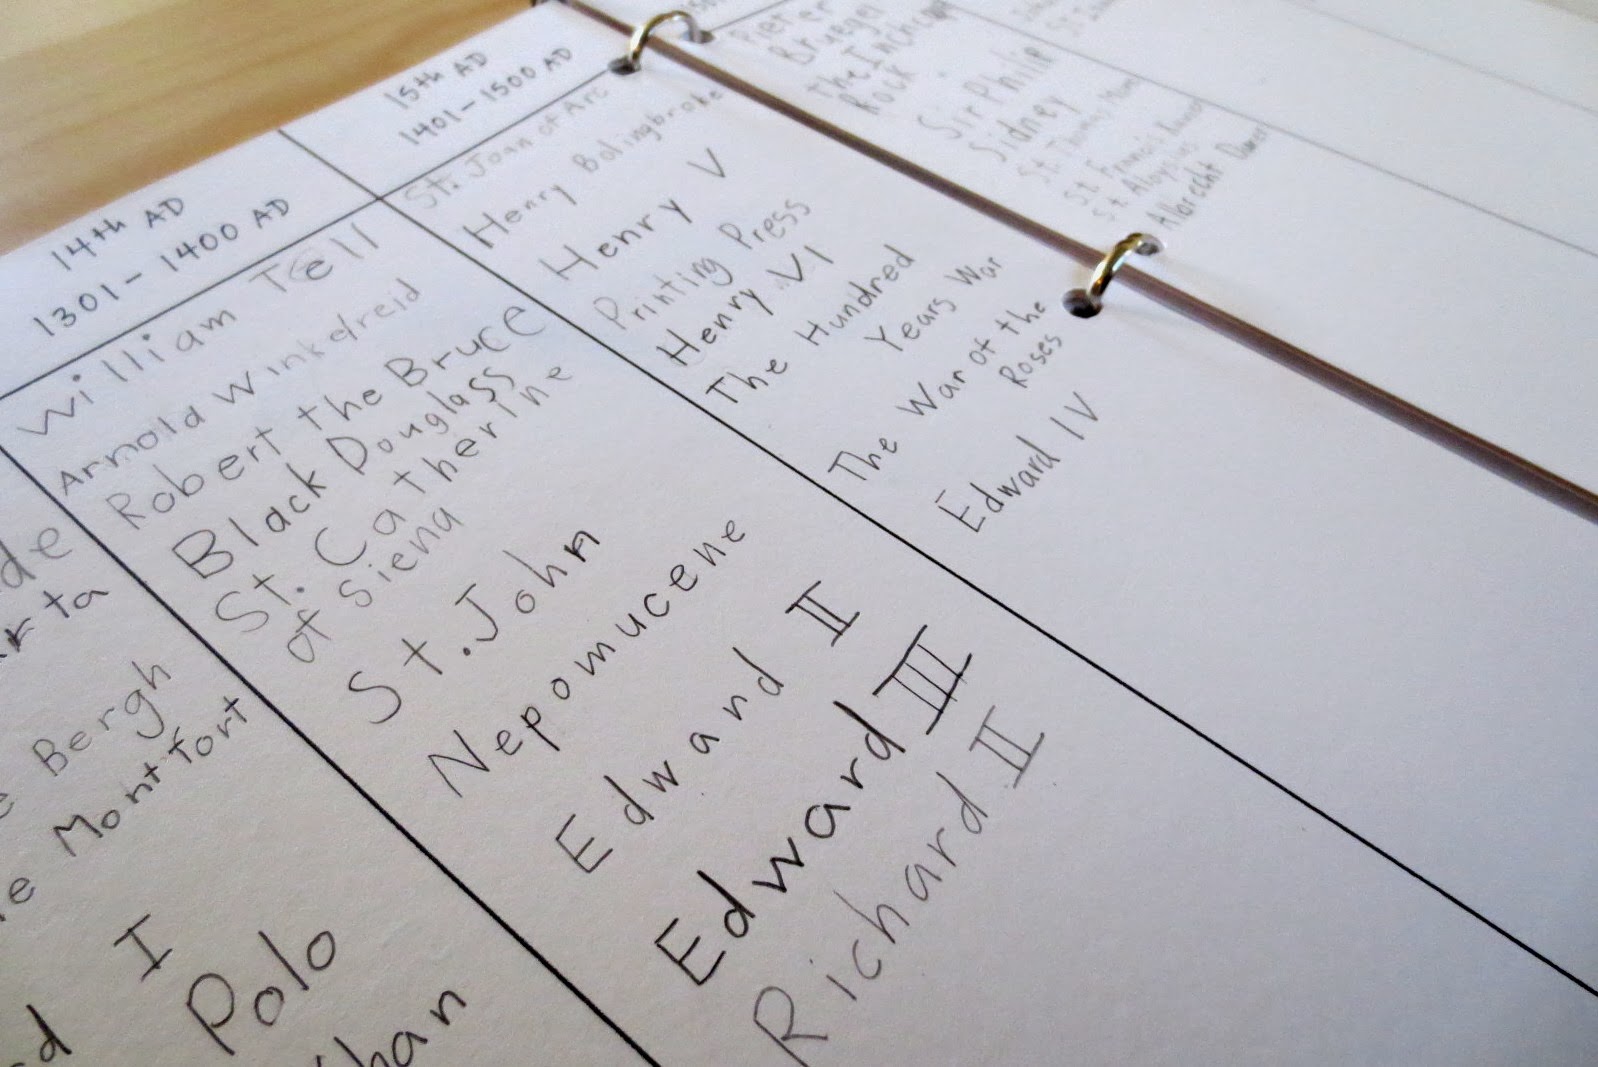 de
rta
Bergh
Montfort
I
Polo
Khan
14th AD
1301 - 1400 AD
William Tell
Arnold Winkelreid
Robert the Bruce
Black Douglass
St. Catherine
of Siena
St. John
Nepomucene
Edward II
Edward III
Richard II
15th AD
1401 - 1500 AD
St. Joan of Arc
Henry Bolingbroke
Henry V
Printing Press
Henry VI
The Hundred
Years War
The War of the
Roses
Edward IV
Pieter
Bruegel
The Inchcape
Rock
Sir Philip
Sidney
St. Thomas More
St. Francis
St. Aloysius
Albrecht Durer